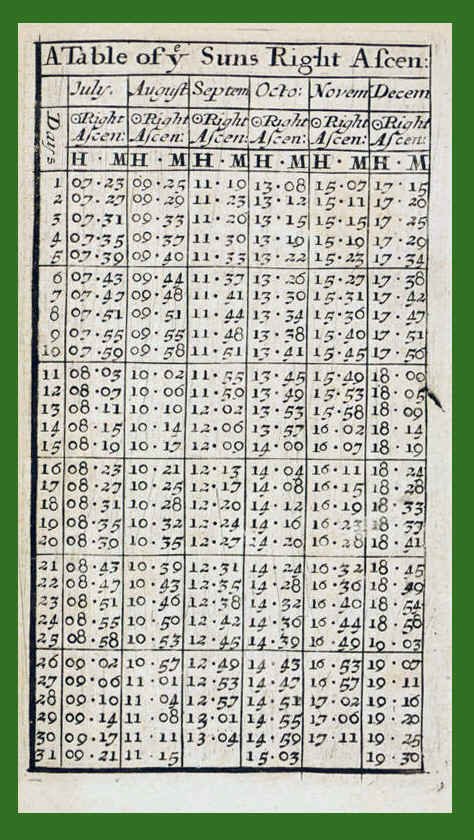 A Table of yͤ Suns Right Aſcen:
July. Auguſt Septem Octo: Novem Decem
Days ☉Right ☉Right ☉Right ☉Right ☉Right ☉Right
Aſcen: Aſcen: Aſcen: Aſcen: Aſcen: Aſcen:
H · M H · M H · M H · M H · M H · M
1 07·23 09·25 11·19 13·08 15·07 17·15
2 07·27 09·29 11·23 13·12 15·11 17·20
3 07·31 09·33 11·26 13·15 15·15 17·25
4 07·35 09·37 11·30 13·19 15·19 17·29
5 07·39 09·40 11·33 13·22 15·23 17·34
6 07·43 09·44 11·37 13·26 15·27 17·38
7 07·47 09·48 11·41 13·30 15·31 17·42
8 07·51 09·51 11·44 13·34 15·36 17·47
9 07·55 09·55 11·48 13·38 15·40 17·51
10 07·59 09·58 11·51 13·41 15·45 17·56
11 08·03 10·02 11·55 13·45 15·49 18·00
12 08·07 10·06 11·59 13·49 15·53 18·05
13 08·11 10·10 12·02 13·53 15·58 18·09
14 08·15 10·14 12·06 13·57 16·02 18·14
15 08·19 10·17 12·09 14·00 16·07 18·19
16 08·23 10·21 12·13 14·04 16·11 18·24
17 08·27 10·25 12·17 14·08 16·15 18·28
18 08·31 10·28 12·20 14·12 16·19 18·33
19 08·35 10·32 12·24 14·16 16·23 18·37
20 08·39 10·35 12·27 14·20 16·28 18·41
21 08·43 10·39 12·31 14·24 16·32 18·45
22 08·47 10·43 12·35 14·28 16·36 18·49
23 08·51 10·46 12·38 14·32 16·40 18·54
24 08·55 10·50 12·42 14·36 16·44 18·58
25 08·58 10·53 12·45 14·39 16·49 19·03
26 09·02 10·57 12·49 14·43 16·53 19·07
27 09·06 11·01 12·53 14·47 16·57 19·11
28 09·10 11·04 12·57 14·51 17·02 19·16
29 09·14 11·08 13·01 14·55 17·06 19·20
30 09·17 11·11 13·04 14·59 17·11 19·25
31 09·21 11·15 15·03 19·30